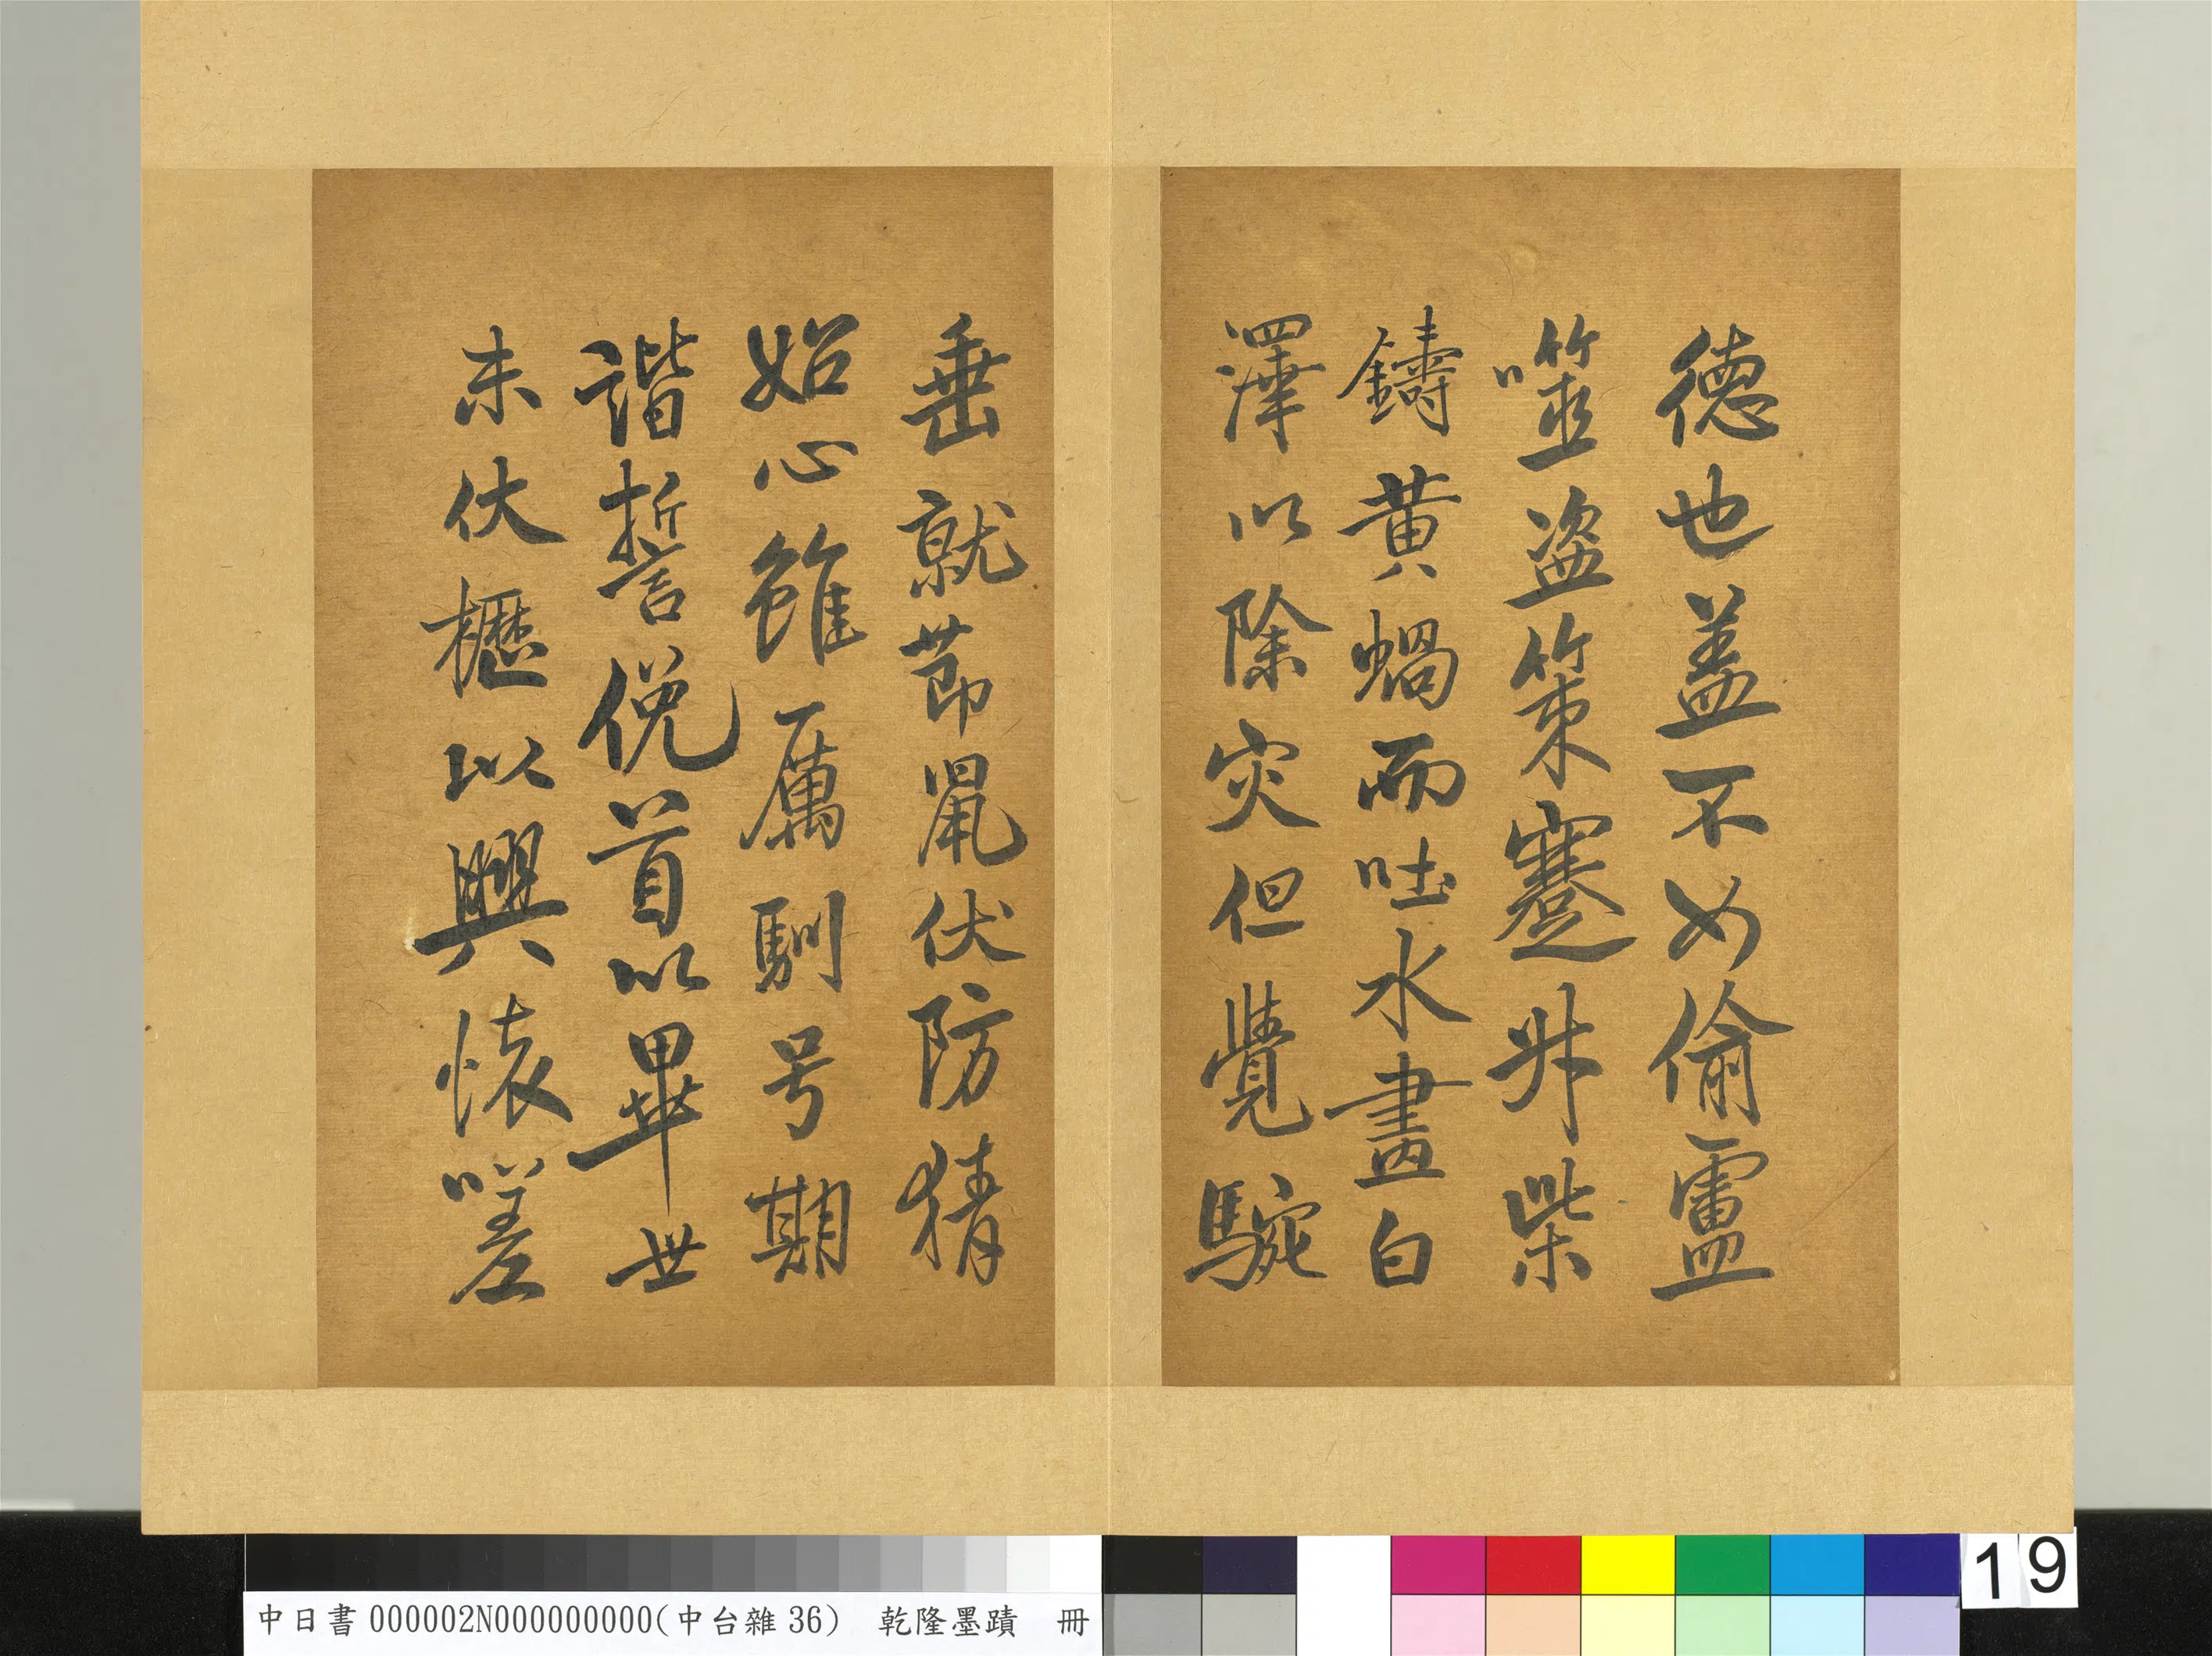 德也盖不如偷靈
噬盗策蹇井柴
鑄黄蝸而吐水畫白
澤以除灾但覺騕
垂就莭鼠伏防猜
始心雖厲馴号期
諧誓俛首以畢世
未伏櫪以興懐嗟
中日書000002N000000000(中台雜36) 乾隆墨蹟 冊
19